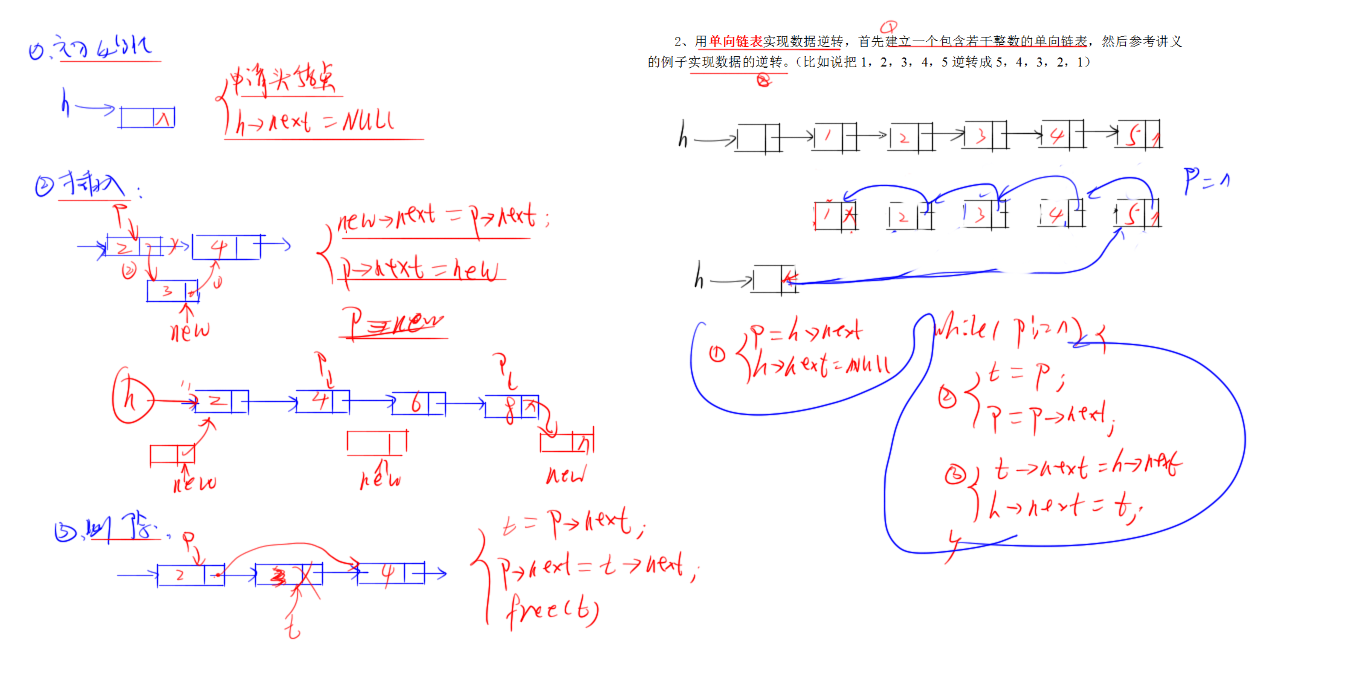 ①.初始化
h
∧
申请头结点
h→next = NULL
②插入:
p
2
4
②
①
3
new
new→next = p→next;
p→next = new
p = new
h
2
p
4
6
p
8
∧
new
new
new
③.删除.
p
2
3
4
t
t = p→next;
p→next = t→next;
free(t)
①
2、用单向链表实现数据逆转，首先建立一个包含若干整数的单向链表，然后参考讲义
的例子实现数据的逆转。（比如说把 1，2，3，4，5 逆转成 5，4，3，2，1）
②
h
1
2
3
4
5
∧
p=∧
1
∧
2
3
4
5
∧
h
①
p = h→next
h→next = NULL
while( p!=∧ ) {
②
t = p;
p = p→next;
③
t→next = h→next
h→next = t;
}